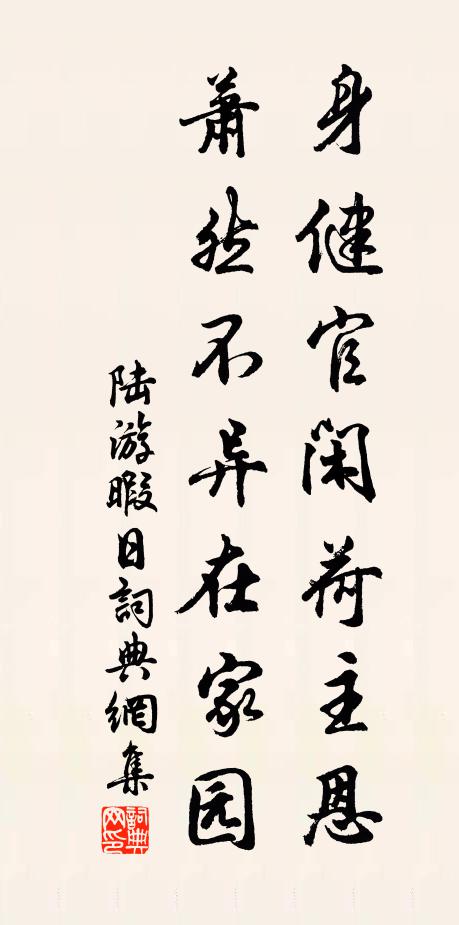 身健官闲荷主恩
萧然不异在家园
陆游暇日詞典網集
詞典
网印